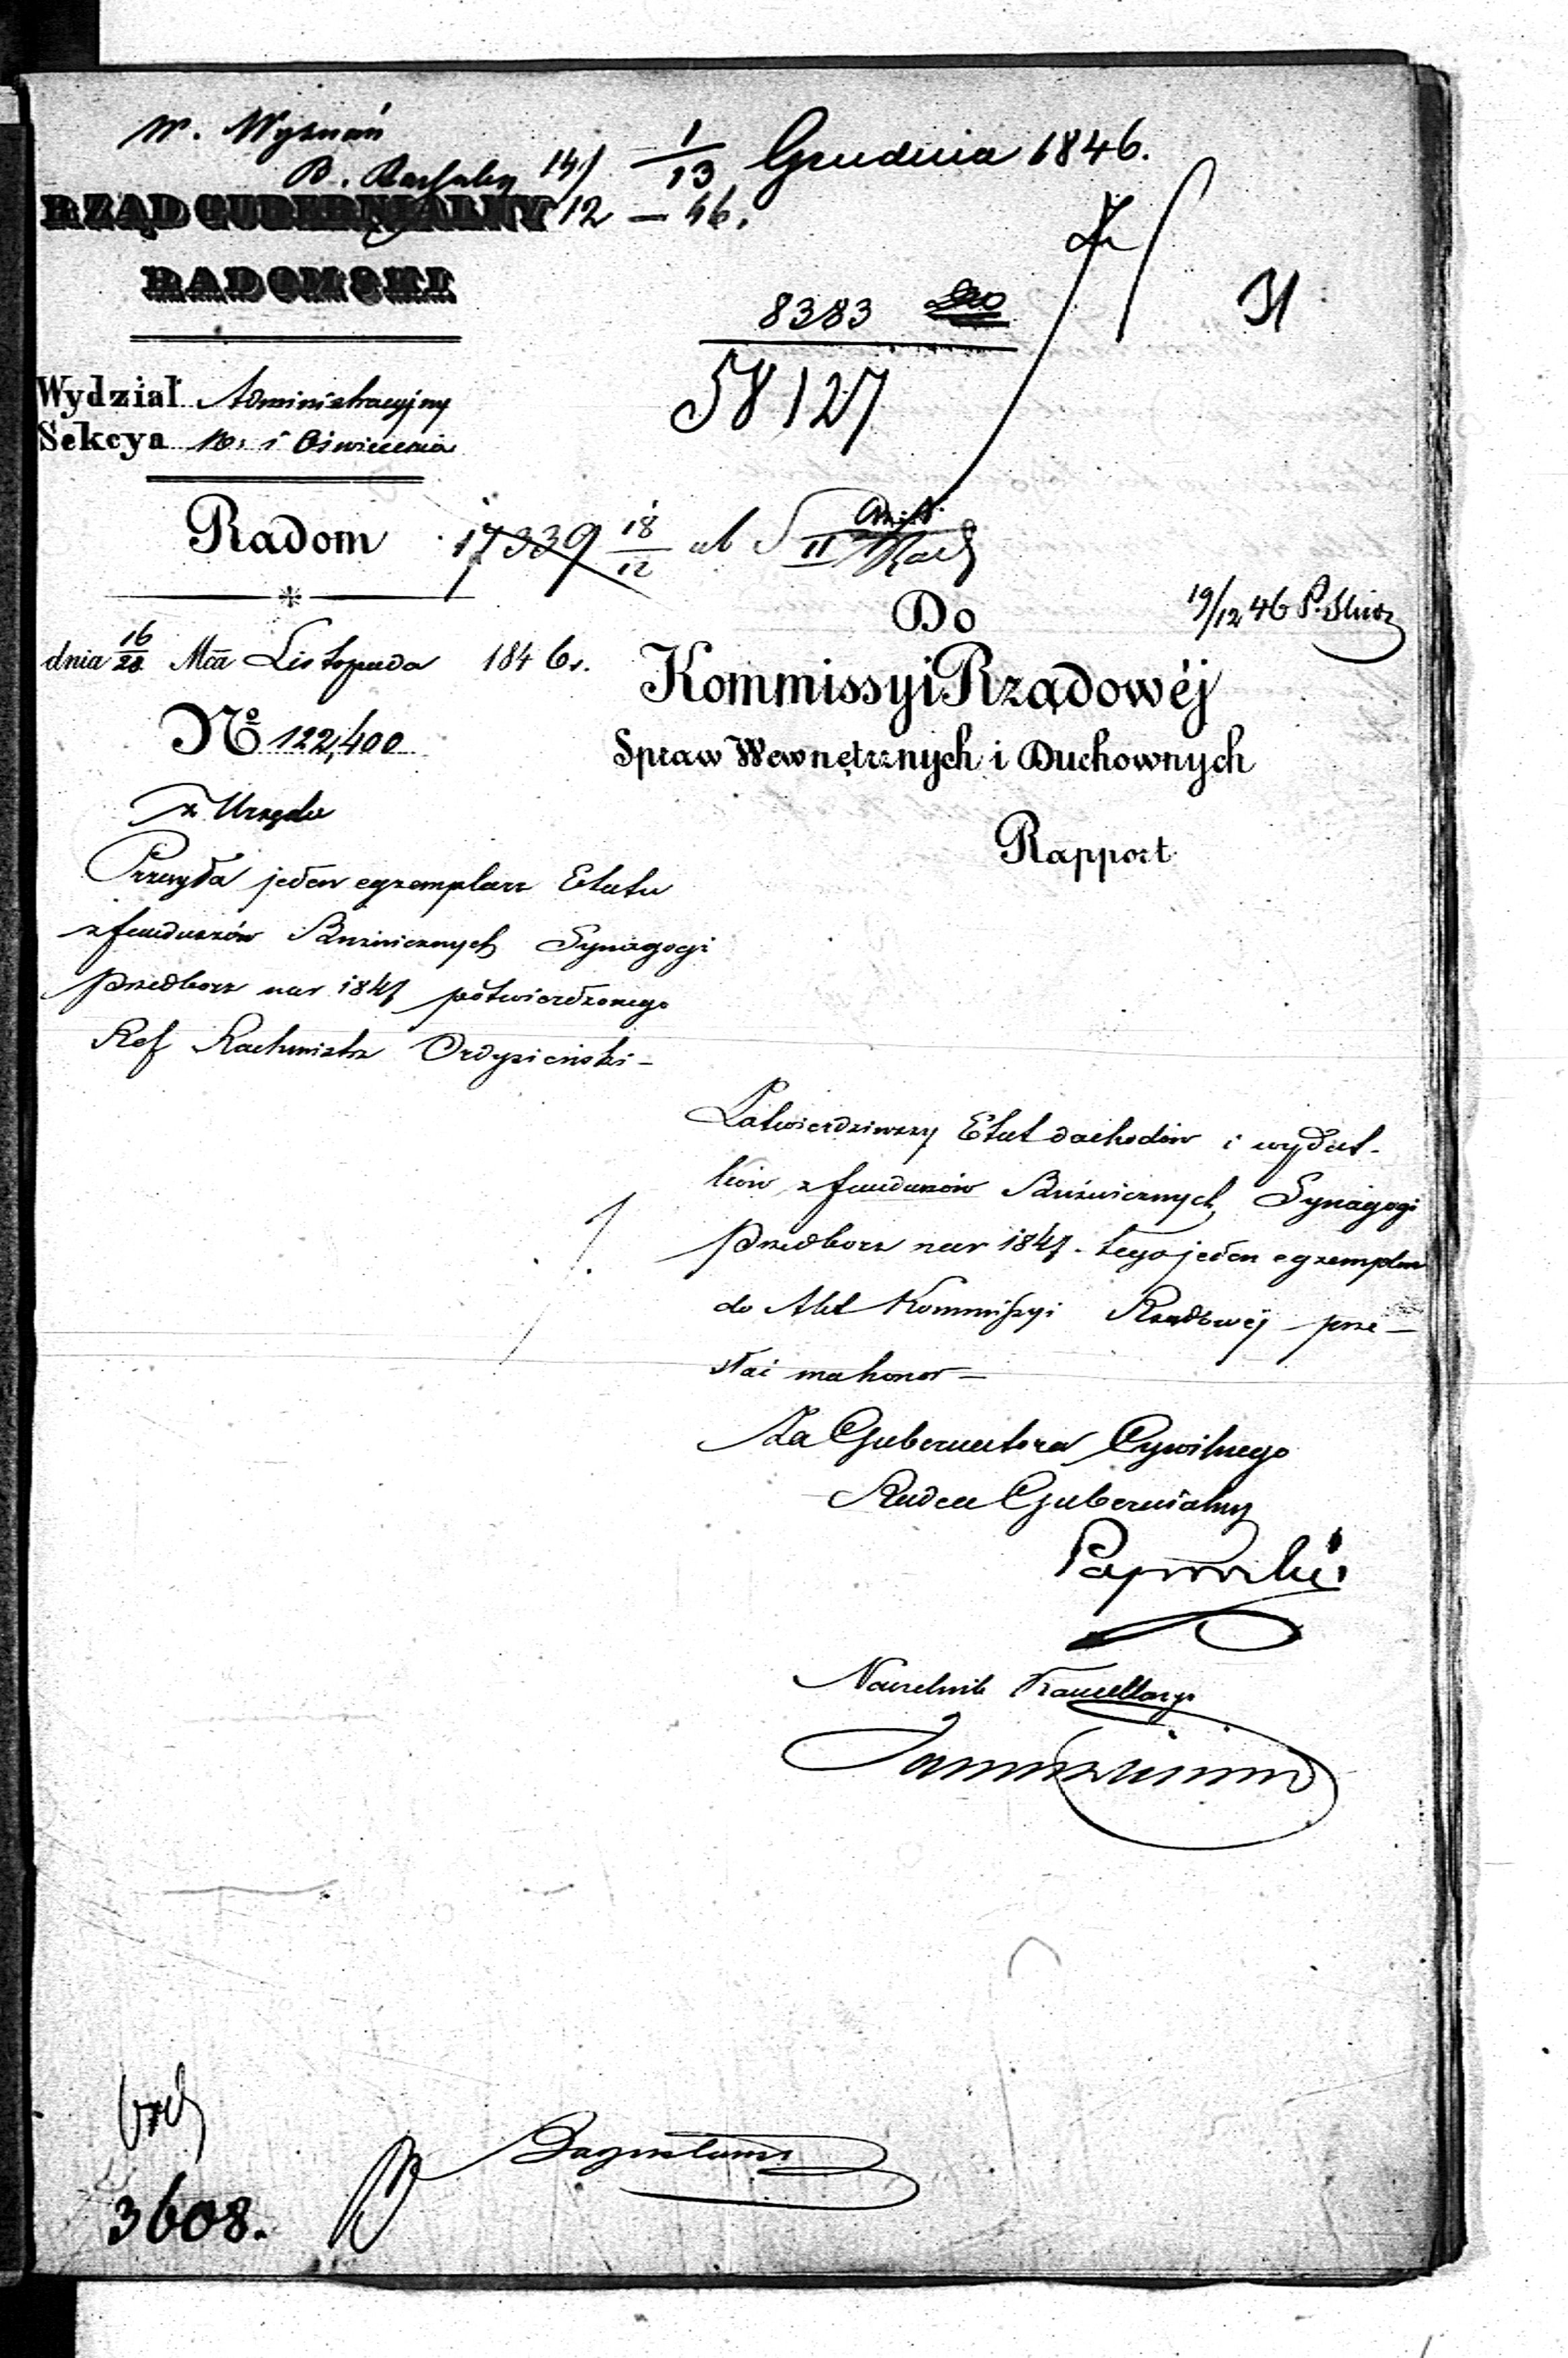 W. Wyznań
1/13 Grudnia 1846.
14/12 – 46.
RZĄD GUBERNIALNY
RADOMSKI
31
8383
58127
Wydział Administracyjny
Sekcya W. i Oświecenia
Radom
17339 18/12 ab II
19/12 46
dnia 16/28 Mca Listopada 1846 r.
No 122,400
Do
Kommissyi Rządowéj
Spraw Wewnętrznych i Duchownych
Rapport
z Urzędu
Przesyła jeden egzemplarz Etatu
z funduszów Bużnicznych Synagogi
Przedborz na r 1847 potwierdzonego
Ref Rachmistrz Ordysiński –
Zatwierdziwszy Etat dochodów i wydat-
ków z funduszów Bużnicznych Synagogi
Przedborz na r 1847. tego jeden egzemplarz
do Akt Kommissyi Rządowej prze –
słać ma honor –
Za Gubernatora Cywilnego
Radca Gubernialny
Paprocki
Naczelnik Kancellaryi
3608.